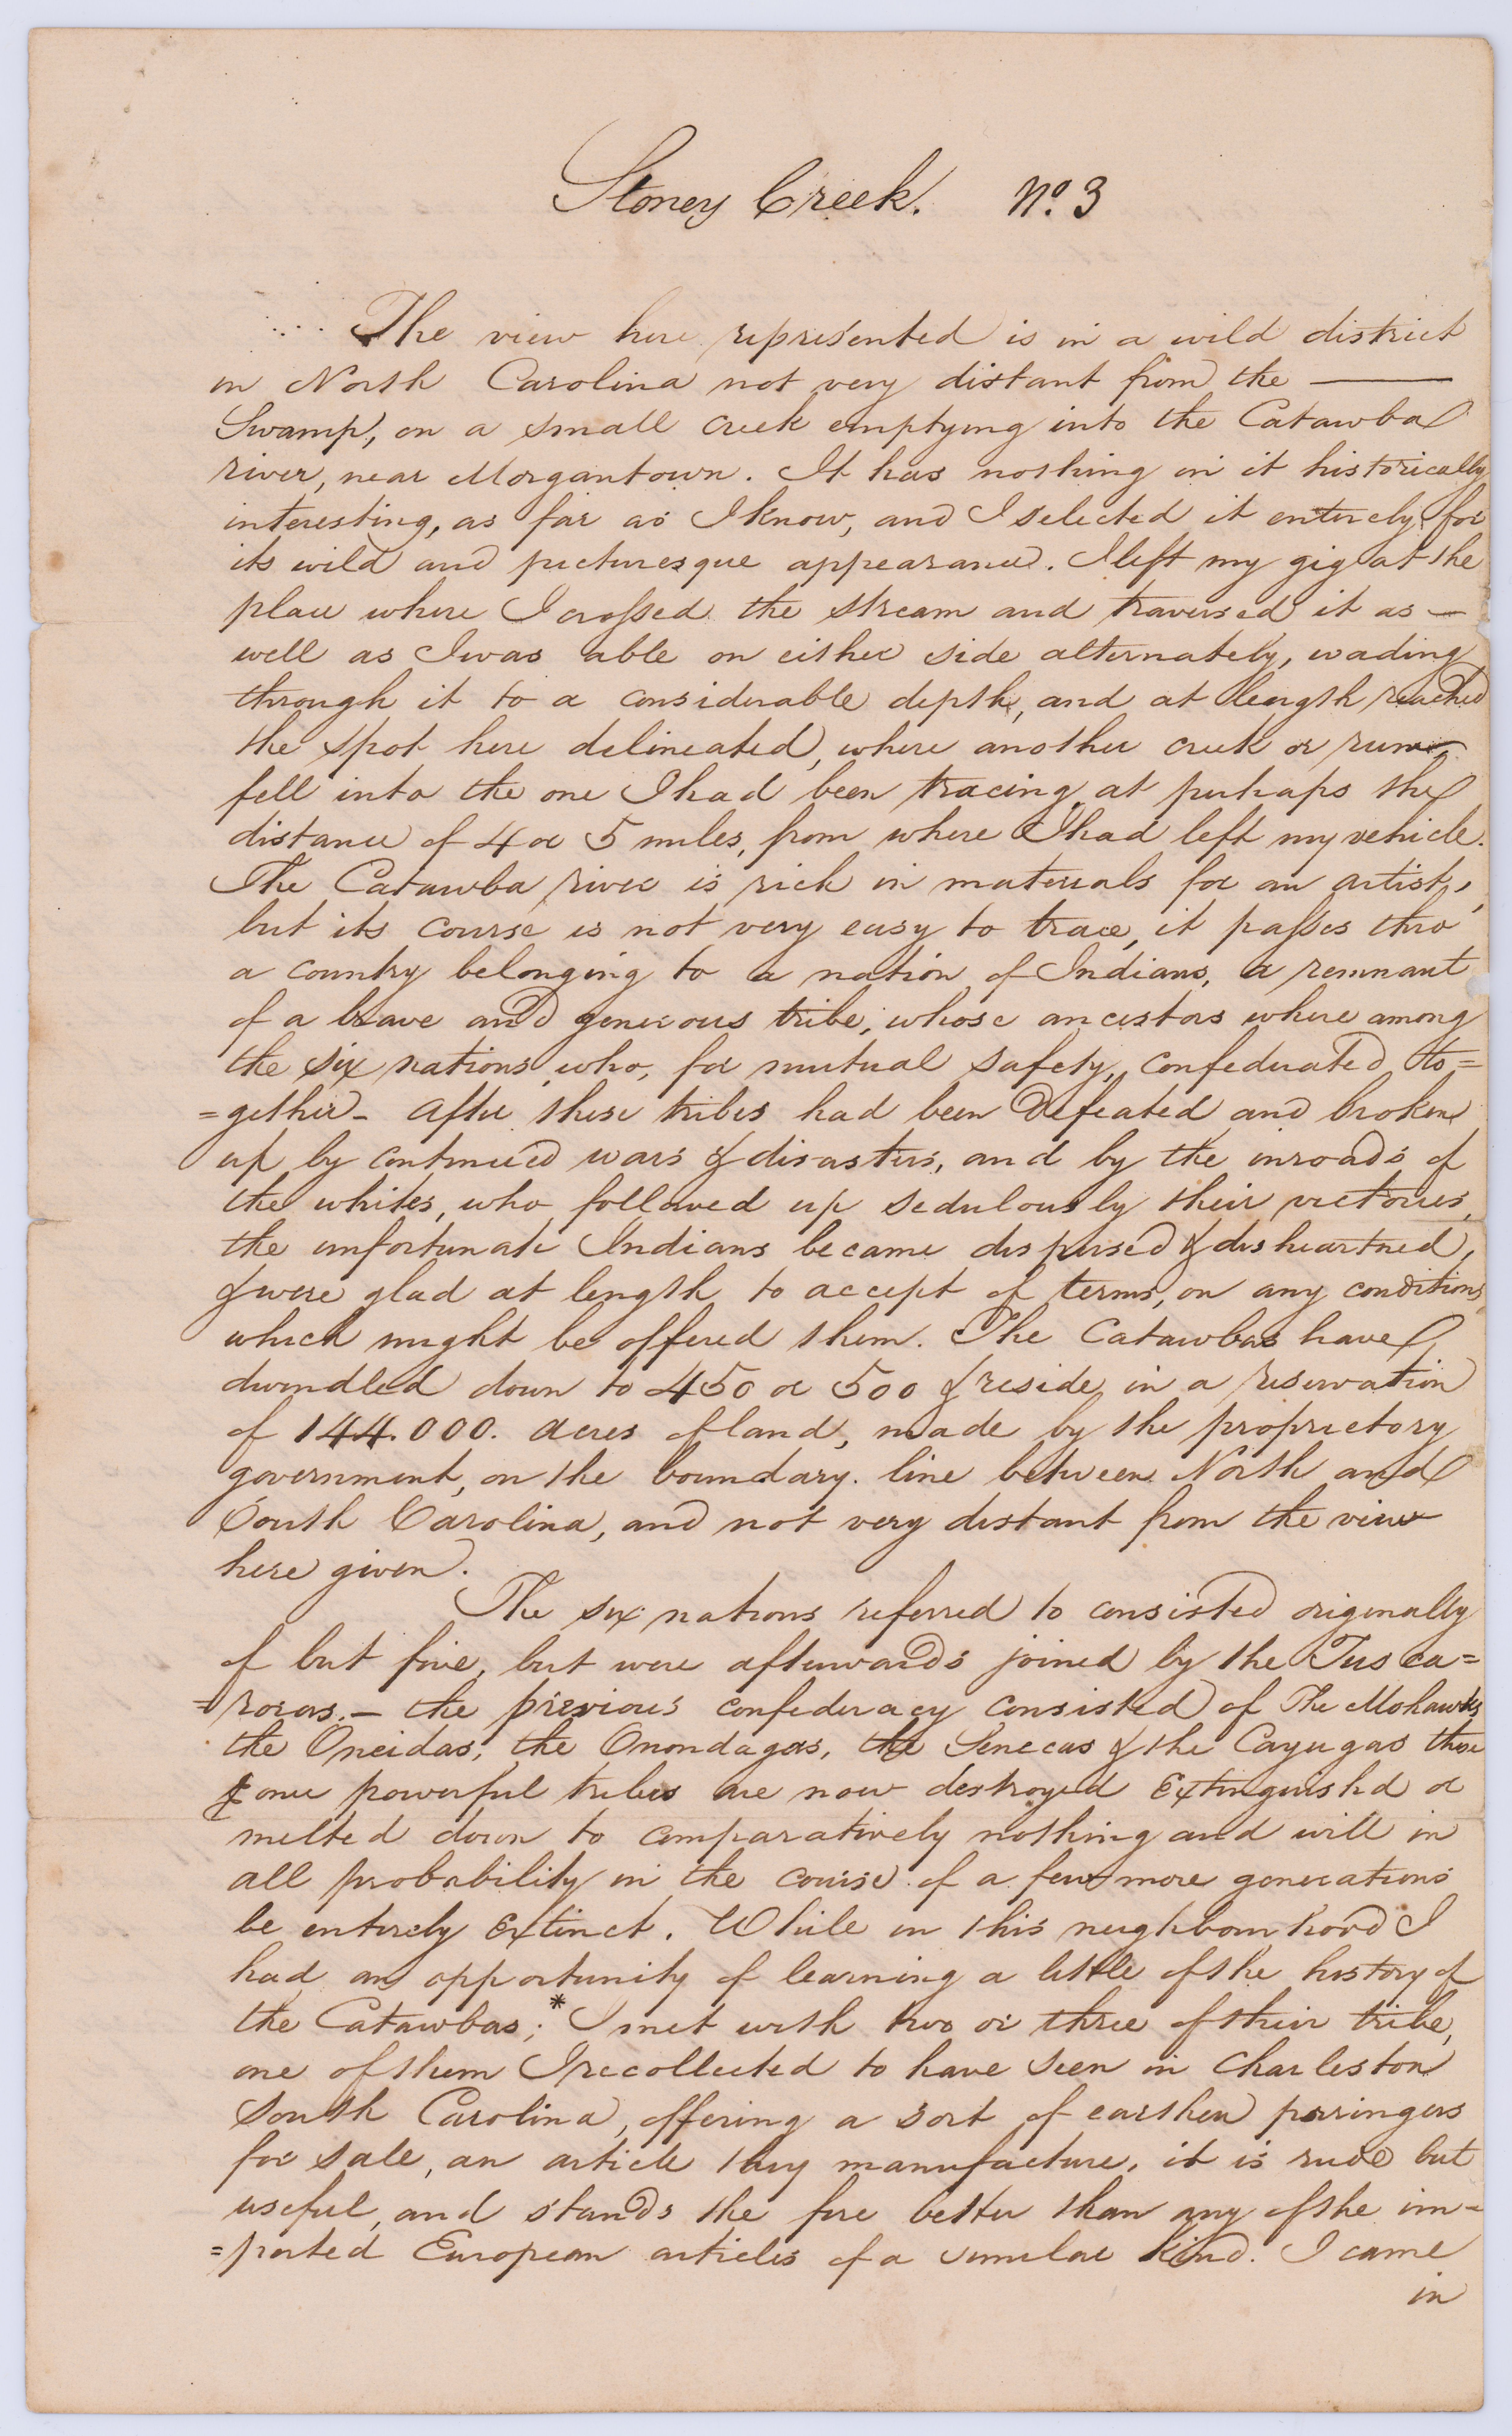 Stoney Creek. No. 3
The view here represented is in a wild district
in North Carolina not very distant from the ———
Swamp, on a small creek emptying into the Catawba
river, near Morgantown. It has nothing in it historically
interesting, as far as I know, and I selected it entirely for
its wild and picturesque appearance. I left my gig at the
place where I crossed the stream and traversed it as —
well as I was able on either side alternately, wading
through it to a considerable depth, and at length reached
the spot here delineated, where another creek or run
fell into the one I had been tracing, at perhaps the
distance of 4 or 5 miles, from where I had left my vehicle.
The Catawba river is rich in materials for an artist,
but its course is not very easy to trace, it passes thro'
a country belonging to a nation of Indians, a remnant
of a brave and generous tribe, whose ancestors where among
the six nations, who, for mutual safety, confederated to=
=gether – After these tribes had been defeated and broken
up by continued wars & disasters, and by the inroads of
the whites, who followed up sedulously their victories,
the unfortunate Indians became dispersed & disheartned,
& were glad at length to accept of terms, on any conditions
which might be offered them. The Catawbas have
dwindled down to 450 or 500 & reside in a reservation
of 144.000. acres of land, made by the proprietory
government, on the boundary line between North and
South Carolina, and not very distant from the view
here given.
The six nations referred to consisted originally
of but five, but were afterwards joined by the Tusca=
=roras. – the previous confederacy consisted of The Mohawks,
the Oneidas, the Onondagas, the Senecas & the Cayugas these
once powerful tribes are now destroyed Extinguishd or
melted down to comparatively nothing and will in
all probability in the course of a few more generations
be entirely Extinct. While in this neighbourhood I
had an opportunity of learning a little of the history of
the Catawbas;* I met with two or three of their tribe,
one of them I recollected to have seen in Charleston
South Carolina, offering a sort of earthen porringers
for sale, an article they manufacture, it is rude but
useful, and stands the fire better than any of the im=
=ported European articles of a similar kind. I came
in